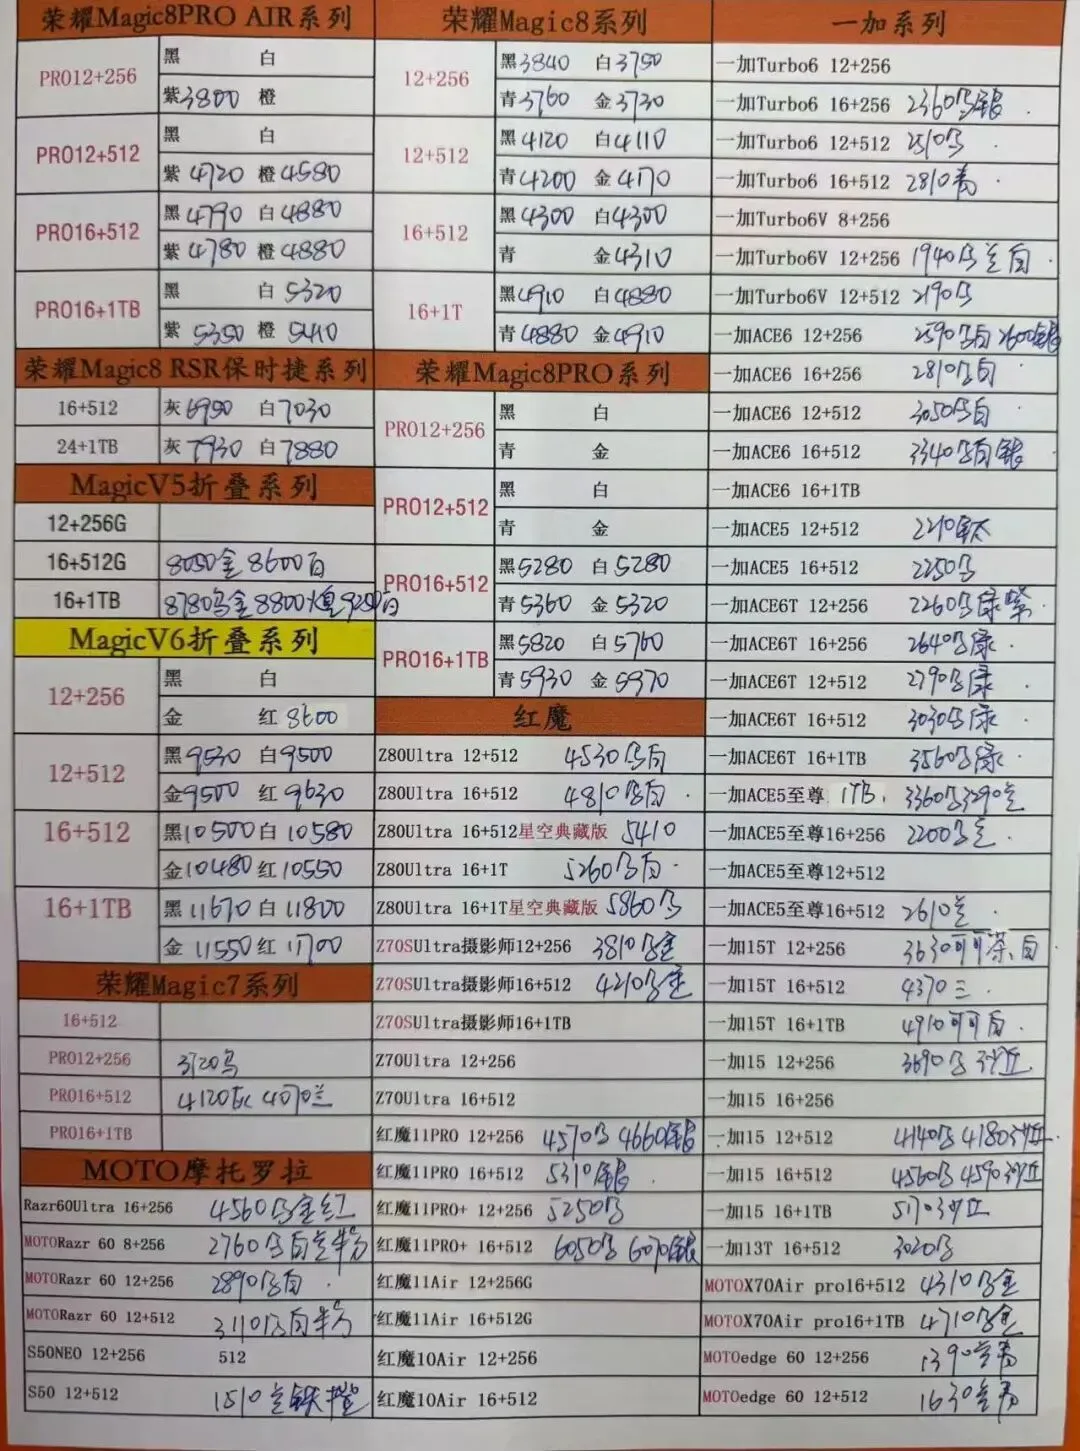 荣耀Magic8PRO AIR系列
PRO12+256
黑 白
紫3800 橙
PRO12+512
黑 白
紫4720 橙4580
PRO16+512
黑4790 白4880
紫4780 橙4880
PRO16+1TB
黑 白5320
紫5350 橙5410
荣耀Magic8 RSR保时捷系列
16+512 灰6950 白7030
24+1TB 灰7930 白7880
MagicV5折叠系列
12+256G
16+512G 8050金 8600白
16+1TB 8780乌金8800 9250白
MagicV6折叠系列
12+256
黑 白
金 红8600
12+512
黑9530 白9500
金9500 红9630
16+512
黑10500 白10580
金10480 红10550
16+1TB
黑11670 白11800
金11550 红11700
荣耀Magic7系列
16+512
PRO12+256 3720乌
PRO16+512 4120灰 4070兰
PRO16+1TB
MOTO摩托罗拉
Razr60Ultra 16+256 4560乌金红
MOTORazr 60 8+256 2760乌白兰粉
MOTORazr 60 12+256 2890乌白
MOTORazr 60 12+512 3110乌白粉
S50NEO 12+256 512
S50 12+512 1510兰
荣耀Magic8系列
12+256
黑3840 白3750
青3760 金3730
12+512
黑4120 白4110
青4200 金4170
16+512
黑4300 白4300
青 金4310
16+1T
黑4910 白4880
青4880 金4910
荣耀Magic8PRO系列
PRO12+256
黑 白
青 金
PRO12+512
黑 白
青 金
PRO16+512
黑5280 白5280
青5360 金5320
PRO16+1TB
黑5820 白5760
青5930 金5970
红魔
Z80Ultra 12+512 4530乌白
Z80Ultra 16+512 4810乌白
Z80Ultra 16+512星空典藏版 5410
Z80Ultra 16+1T 5260乌白
Z80Ultra 16+1T星空典藏版 5860乌
Z70SUltra摄影师12+256 3810乌金
Z70SUltra摄影师16+512 4210乌金
Z70SUltra摄影师16+1TB
Z70Ultra 12+256
Z70Ultra 16+512
红魔11PRO 12+256 4570乌 4660银
红魔11PRO 16+512 5310银
红魔11PRO+ 12+256 5250乌
红魔11PRO+ 16+512 6050乌 6070银
红魔11Air 12+256G
红魔11Air 16+512G
红魔10Air 12+256
红魔10Air 16+512
一加系列
一加Turbo6 12+256
一加Turbo6 16+256 2360乌银
一加Turbo6 12+512 2510乌
一加Turbo6 16+512 2810青
一加Turbo6V 8+256
一加Turbo6V 12+256 1940乌兰白
一加Turbo6V 12+512 2190乌
一加ACE6 12+256 2590乌白 2600银
一加ACE6 16+256 2810乌白
一加ACE6 12+512 3050乌白
一加ACE6 16+512 3340乌白银
一加ACE6 16+1TB
一加ACE5 12+512 2210钛
一加ACE5 16+512 2250乌
一加ACE6T 12+256 2260乌绿紫
一加ACE6T 16+256 2640乌绿
一加ACE6T 12+512 2790乌绿
一加ACE6T 16+512 3030乌绿
一加ACE6T 16+1TB 3560乌绿
一加ACE5至尊 1TB. 3360乌3290兰
一加ACE5至尊16+256 2200乌兰
一加ACE5至尊12+512
一加ACE5至尊16+512 2610兰
一加15T 12+256 3630可可茶、白
一加15T 16+512 4370三
一加15T 16+1TB 4910可可白
一加15 12+256 3690乌 沙丘
一加15 16+256
一加15 12+512 4140乌 4180沙丘
一加15 16+512 4560乌 4590沙丘
一加15 16+1TB 5170沙丘
一加13T 16+512 3020乌
MOTOX70Air pro16+512 4310乌金
MOTOX70Air pro16+1TB 4710乌金
MOTOedge 60 12+256 1390兰青
MOTOedge 60 12+512 1630兰青